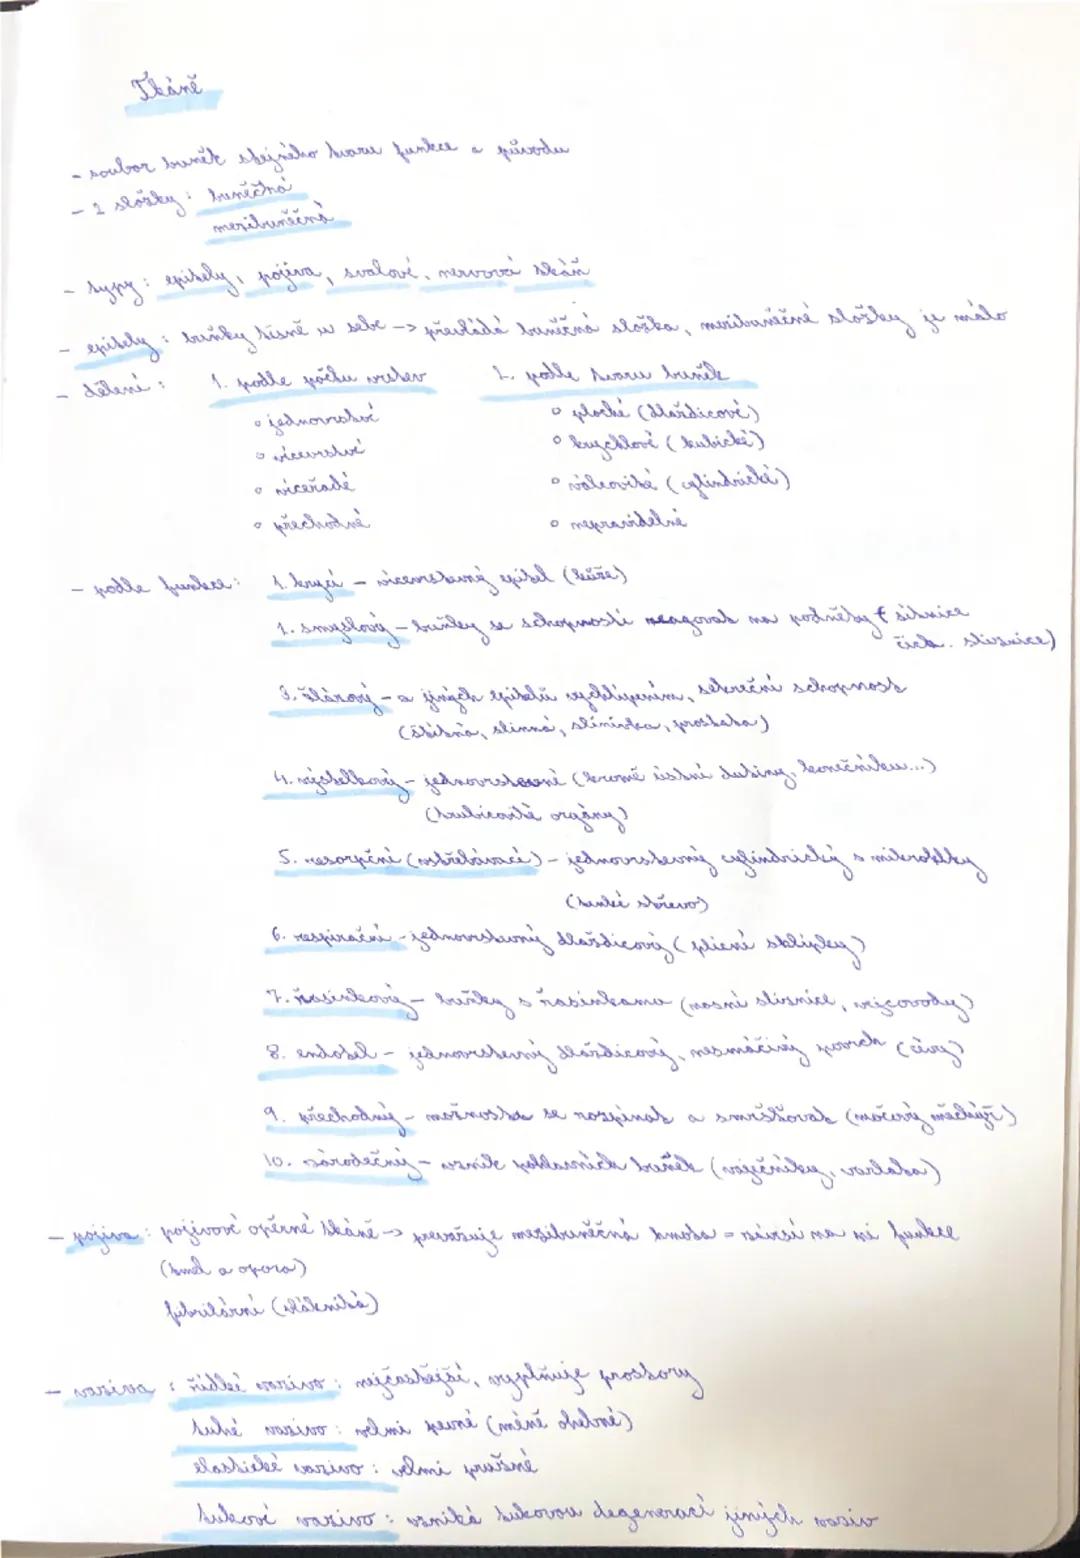 Tkáně
- soubor buněk stejného tvaru funkce a původu
- 2 složky: buněčná
mezibuněčná
- typy: epitely, pojiva, svalové, nervová tkáň
- epitely: buňky těsně u sebe -> převládá buněčná složka, mezibuněčné složky je málo
- dělení: 1. podle počtu vrstev 2. podle tvaru buněk
◦ jednovrstvé ◦ ploché (dlaždicové)
◦ vícevrstvé ◦ krychlové (kubické)
◦ víceřadé ◦ válcovité (cylindrické)
◦ přechodné ◦ nepravidelné
- podle funkce: 1. krycí - vícevrstevný epitel (kůže)
2. smyslový - buňky se schopností reagovat na podněty (sítnice
čich. sliznice)
3. žlázový - z jiných epitelů vychlípením, sekreční schopnost
(štítná, slinná, slinivka, prostata)
4. výstelkový - jednovrstevné (kromě ústní dutiny, konečníku...)
(trubicovité orgány)
5. resorpční (vstřebávací) - jednovrstevný cylindrický s mikroklky
(tenké střevo)
6. respirační - jednovrstevný dlaždicový (plicní sklípky)
7. řasinkový - buňky s řasinkama (nosní sliznice, vejcovody)
8. endotel - jednovrstevný dlaždicový, nesmáčivý povrch (cévy)
9. přechodný - možnost se rozpínat a smršťovat (močový měchýř)
10. zárodečný - vznik pohlavních buněk (vaječníky, varlata)
- pojiva: pojivové opěrné tkáně -> převažuje mezibuněčná hmota = závisí na ní funkce
(tmel a opora)
fibrilární (vláknitá)
- vaziva: řídké vazivo: nejčastější, vyplňuje prostory
tuhé vazivo: velmi pevné (méně ohebné)
elastické vazivo: velmi pružné
tukové vazivo: vzniká tukovou degenerací jiných vaziv